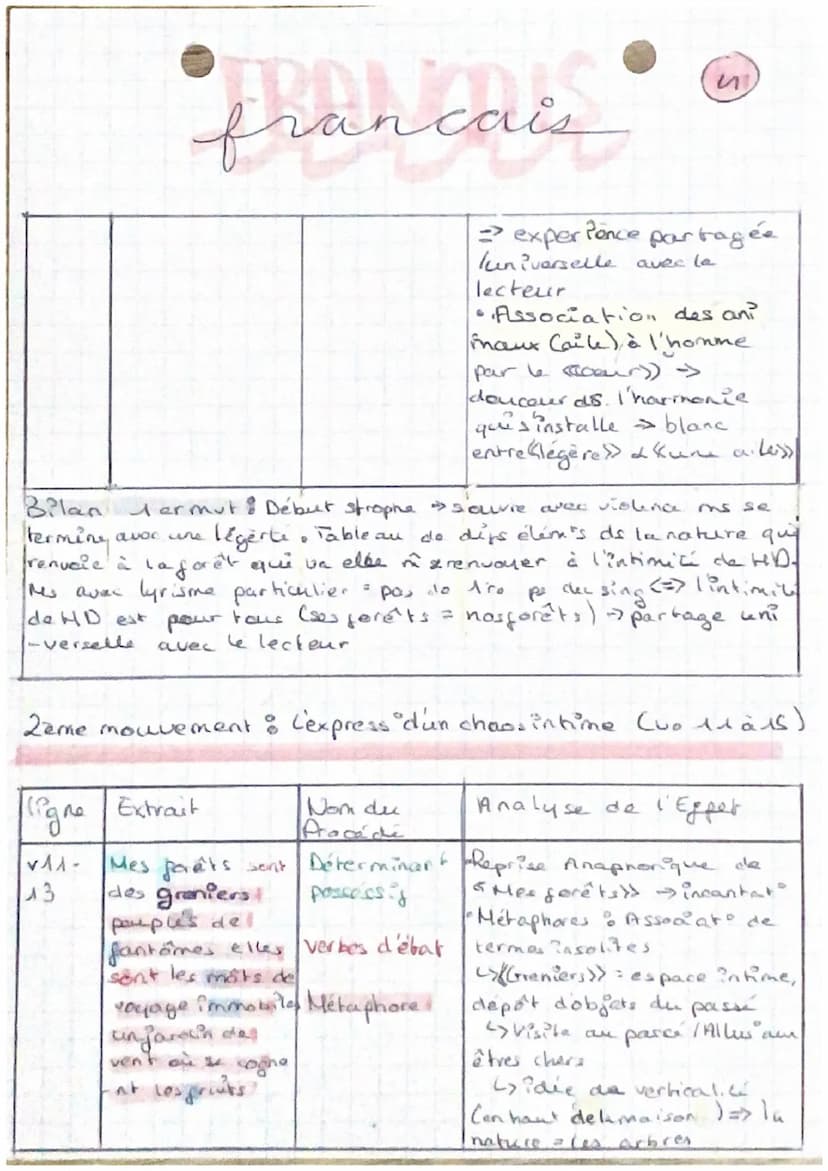 FRANÇAIS
français
=> expérience partagée
/universelle avec le
lecteur
• Association des ani
maux (aile) à l'homme
par le «coeur» ->
douceur ds. l'harmonie
qui s'installe -> blanc
entre «légère» & «une aile»
Bilan 1er mvt : Début strophe -> s'ouvre avec violence ms se
termine avec une légèrté. Tableau de difs élémts ds la nature qui
renvoie à la forêt qui va elle m̂ renvoyer à l'intimité de HD.
Ms avec lyrisme particulier = pas de 1re ps du sing <=> l'intimité
de HD est pour tous (ses forêts = nos forêts) -> partage uni
-verselle avec le lecteur
2ème mouvement : L'express° d'un chaos intime (v. 11 à 15)
ligne
Extrait
Nom du
Procédé
Analyse de l'Effet
v11-
13
Mes forêts sont
des greniers
peuplés de
fantômes elles
sont les mâts de
voyage immobiles
un jardin de
vent où se cogne
nt les fruits
Déterminant
possessif
Verbes d'état
Métaphore
•Reprise Anaphorique de
«Mes forêts» -> incantat°
•Métaphores : Associat° de
termes insolites
↳«Greniers» = espace intime,
dépôt d'objets du passé
↳ Visite au passé / Allus° aux
êtres chers
↳ idée de verticalité
(en haut de la maison) => la
nature = les arbres